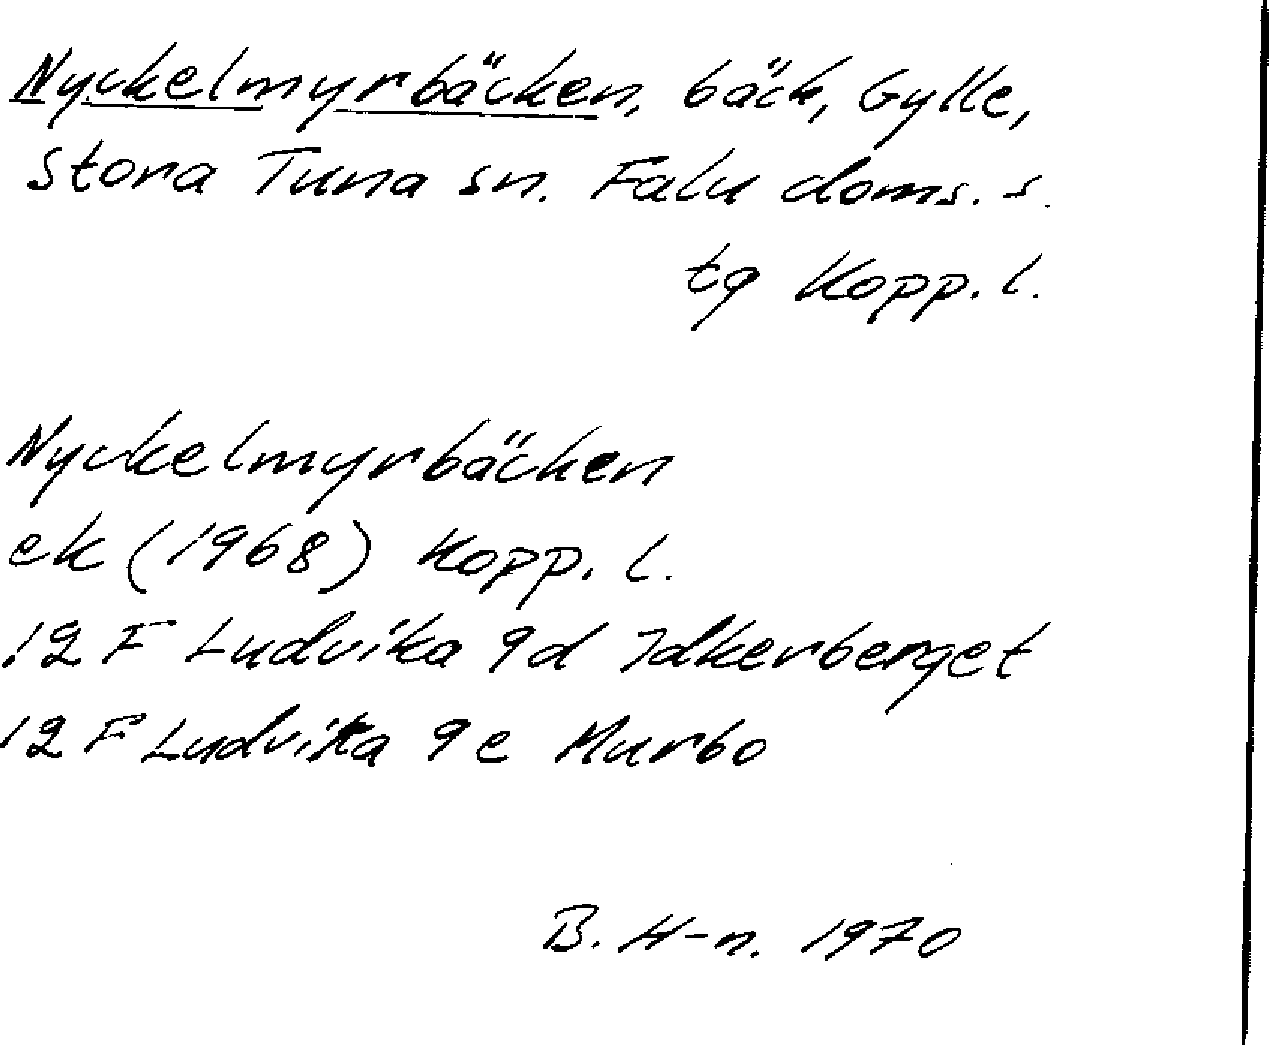 Nyckelmyrbäcken, bäck, Gylle,
Stora Tuna sn. Falu doms. s.
tg Kopp. l.
Nyckelmyrbäcken
ek (1968) Kopp. l.
12 F Ludvika 9d Idkerberget
12 F Ludvika 9e Murbo
B. H-n. 1970